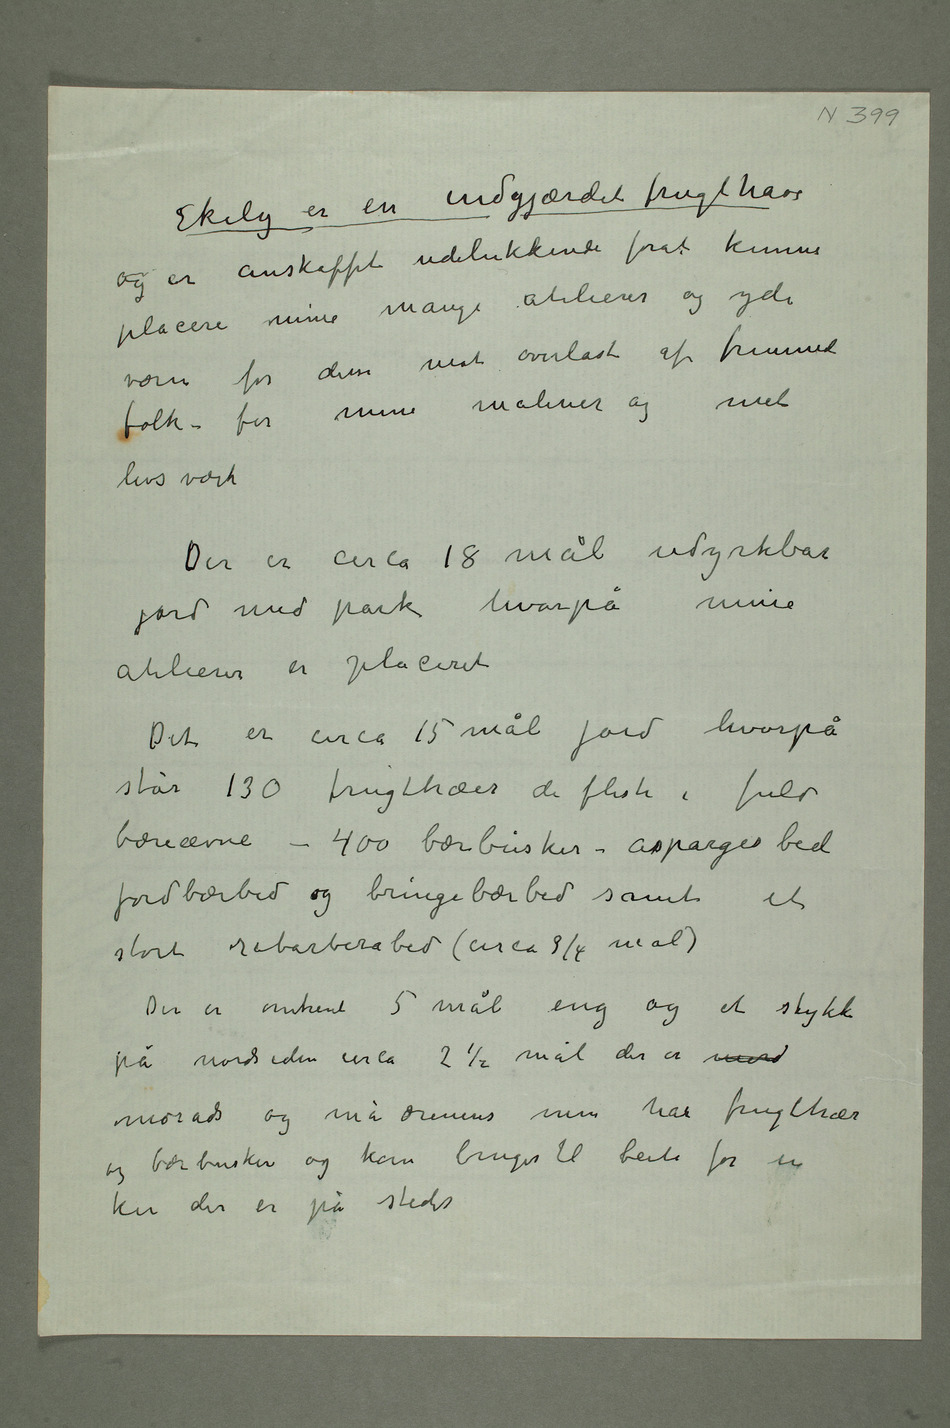 N 399
Ekely er en indgjærdet frugthave
og er anskaffet udelukkende forat kunne
placere mine mange atelierer og yde
værn for disse mot overlast af fremmed
folk – for mine malerier og mit
livsværk
Der er circa 18 mål udyrkbar
jord med park hvorpå mine
atelierer er placeret
Det er circa 15 mål jord hvorpå
står 130 frugttræer de fleste i fuld
bæreævne – 400 bærbusker – asparges bed
jordbærbed og bringebærbed samt et
stort rabarberabed (circa 3/4 mål)
Der er omtrent 5 mål eng og et stykke
på nordsiden circa 2 1/2 mål der er
morads og må drenneres men har frugttrær
og bærbusker og kan bruges til beite for en
ku der er på stedet